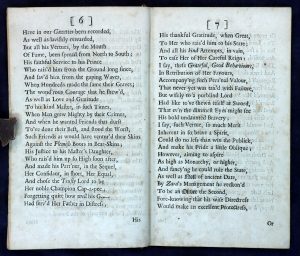 [ 6 ]
Here in our Gazettes been recorded,
As well as lavishly rewarded,
But all his Vertues, by the Mouth
Of Fame, been spread from North to South:
His faithful Service to his Prince
Who call'd him from the Ground long since,
And sav'd him from the gaping Waves,
When Hundreds made the same their Graves;
The wond'rous Courage that he shew'd,
As well as Love and Gratitude
To his kind Master, in such Times,
When Man grew Mighty by their Crimes,
And when he wanted Friends that durst
To've done their Best, and stood the Worst,
Such Friends as would have ventur'd their Skins
Against the Boots in
His Justice to his Master's Daughter,
Who rais'd him up so high soon after,
And made his Partner, in the Sequel,
Her Confident, in short, Her Equal,
And chose the Trusty Lord to be
Her noble Champion Cap-a-pee;
Forgetting quite how
Had serv'd Her Father in Distress,
His
[ 7 ]
His thankful Gratitude, when Great,
To Her who rais'd him to his State;
And all his kind Attempts, in vain,
To ease Her of Her Careful Reign:
I say, these Grateful, Good Behaviours,
In Retribution of Her Favours,
Accompany'd such Personal Valour,
That never yet was ta'en with Failure,
But wisely to a puritan Lord
Had like to've shewn itself at Sword,
That ev'n the dimmest Eyes might see
His bold undaunted Bravery:
I say, such Vertue, so much Merit
Inherent in so brave a Spirit,
Could do no less than win the Publick,
And make his Pride a little
However, aiming to aspire
As high as Monarchy, or higher,
And fancy'ng he could rule the State,
As well as of ancient Date,
By Zara's Management he reckon'd
To be an Oliver the Second,
Fore-knowing that his wife Directress
Would make an excellent Protectress,
Or